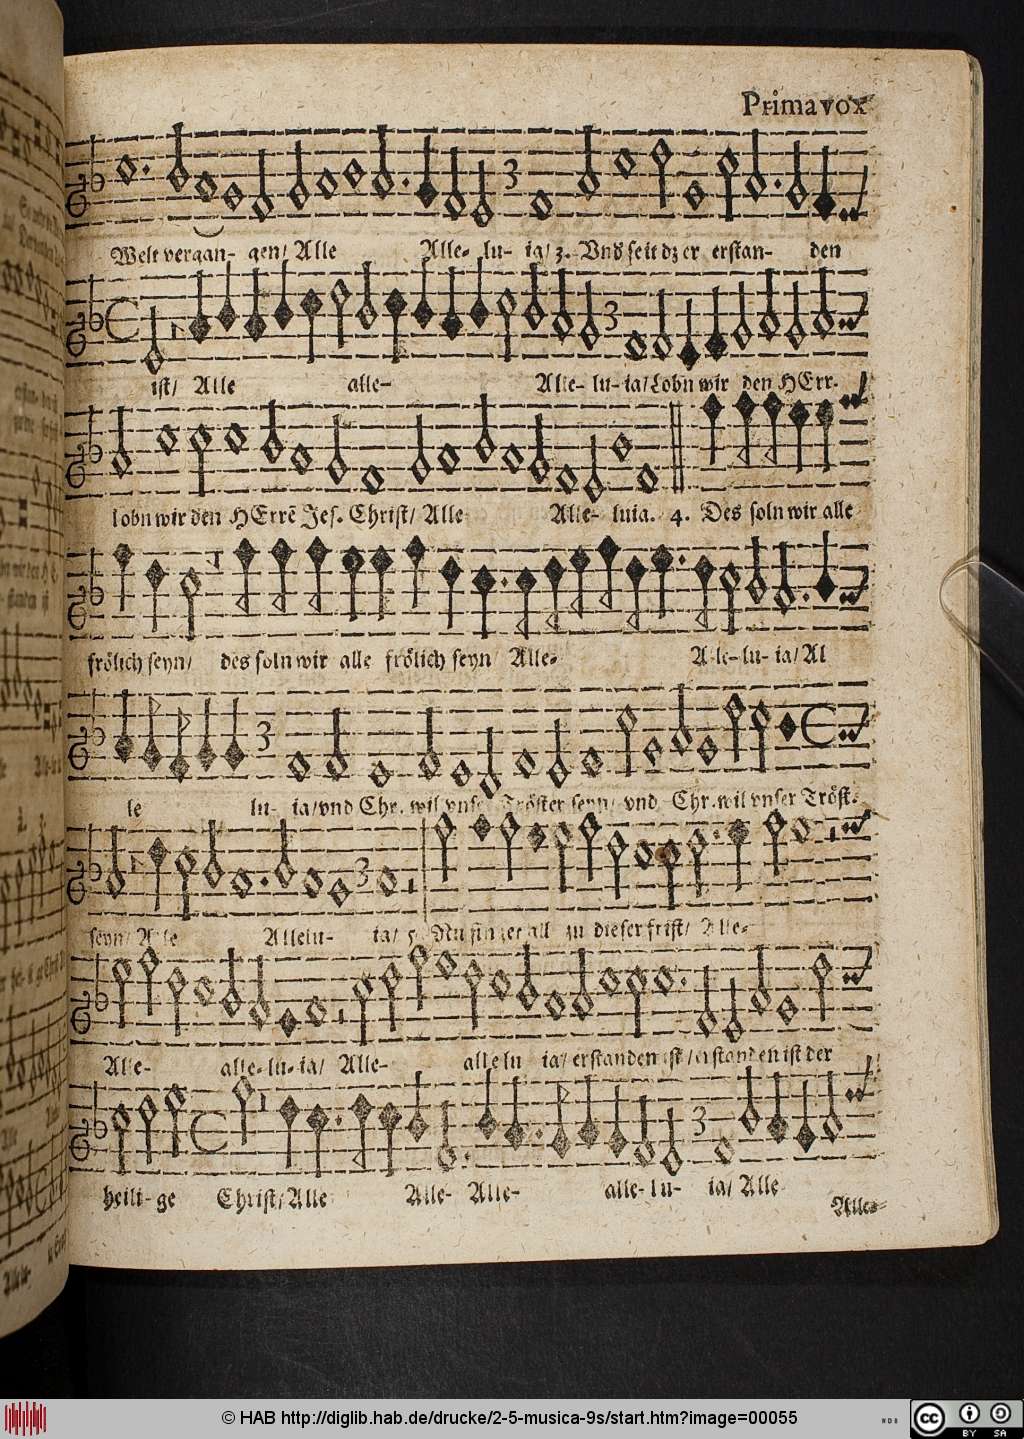 Prima vox
Welt vergan- gen/ Alle Alle- lu- ia/ 3. Vnd seit dz er erstan- den
ist/ Alle alle- Alle- lu- ia/ Lobn wir den HErr-
lobn wir den HErrē Jes. Christ/ Alle Alle- luia. 4. Des soln wir alle
frölich seyn/ des soln wir alle frölich seyn/ Alle- Alle- lu- ia/ Al
le lu- ia/ vnd Chr. wil vnser Tröster seyn/ vnd Chr. wil vnser Tröst.
seyn/ Alle Allelu- ia/ 5. Nu singet all zu dieser frist/ Alle-
Alle- alle- lu- ia/ Alle- alle lu ia/ erstanden ist/ erstanden ist der
heili- ge Christ/ Alle Alle- Alle- alle- lu- ia/ Alle
Alle-
© HAB http://diglib.hab.de/drucke/2-5-musica-9s/start.htm?image=00055
CC BY SA